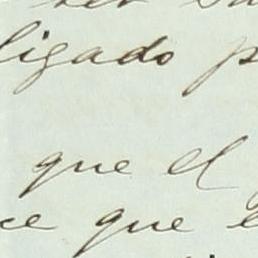 ligado p
que el
ce que e